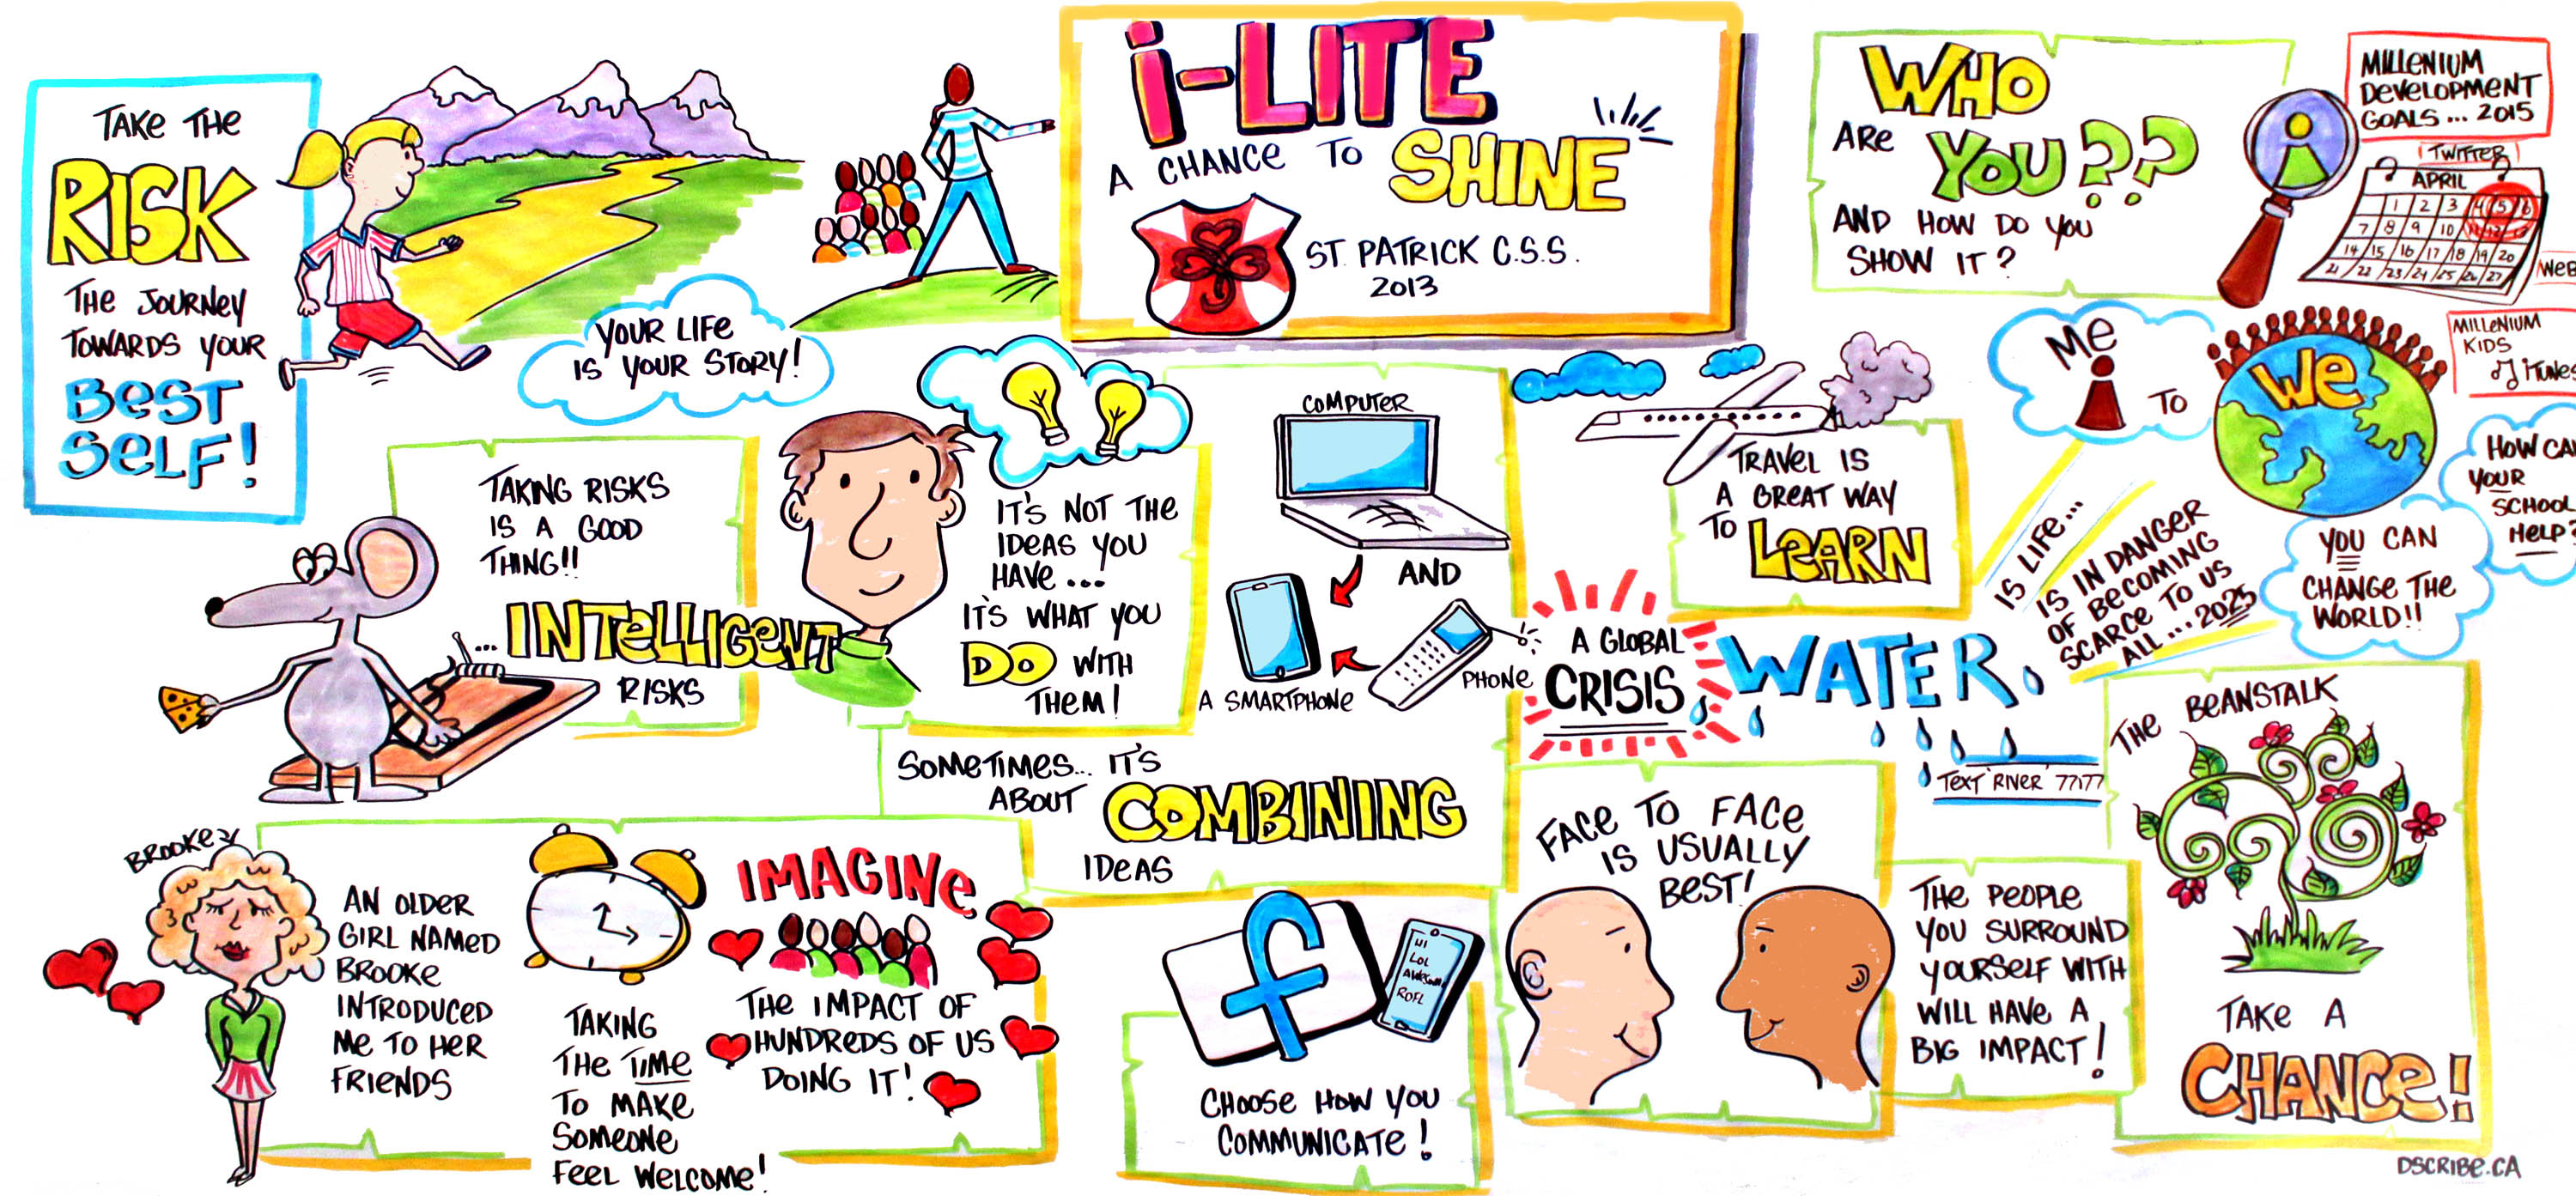 TAKE THE
RISK
THE JOURNEY
TOWARDS YOUR
BEST
SELF!
YOUR LIFE
IS YOUR STORY!
i-LITE
A CHANCE TO SHINE
ST. PATRICK C.S.S.
2013
WHO
ARE YOU??
AND HOW DO YOU
SHOW IT?
MILLENIUM
DEVELOPMENT
GOALS... 2015
TWITTER
APRIL
1 2 3 4 5 6
7 8 9 10 11 12 13
14 15 16 17 18 19 20
21 22 23 24 25 26 27
WEB
MILLENIUM
KIDS
iTUNES
ME
TO
WE
HOW CAN
YOUR
SCHOOL
HELP?
YOU CAN
CHANGE THE
WORLD!!
TAKING RISKS
IS A GOOD
THING!!
...INTELLIGENT
RISKS
IT'S NOT THE
IDEAS YOU
HAVE...
IT'S WHAT YOU
DO WITH
THEM!
COMPUTER
AND
A SMARTPHONE
PHONE
SOMETIMES... IT'S
ABOUT COMBINING
IDEAS
TRAVEL IS
A GREAT WAY
TO LEARN
A GLOBAL
CRISIS
WATER
IS LIFE...
IS IN DANGER
OF BECOMING
SCARCE TO US
ALL... 2025
TEXT 'RIVER' 77177
BROOKE
AN OLDER
GIRL NAMED
BROOKE
INTRODUCED
ME TO HER
FRIENDS
TAKING
THE TIME
TO MAKE
SOMEONE
FEEL WELCOME!
IMAGINE
THE IMPACT OF
HUNDREDS OF US
DOING IT!
f
HI
LOL
AWESOME
ROFL
CHOOSE HOW YOU
COMMUNICATE!
FACE TO FACE
IS USUALLY
BEST!
THE PEOPLE
YOU SURROUND
YOURSELF WITH
WILL HAVE A
BIG IMPACT!
THE BEANSTALK
TAKE A
CHANCE!
DSCRIBE.CA